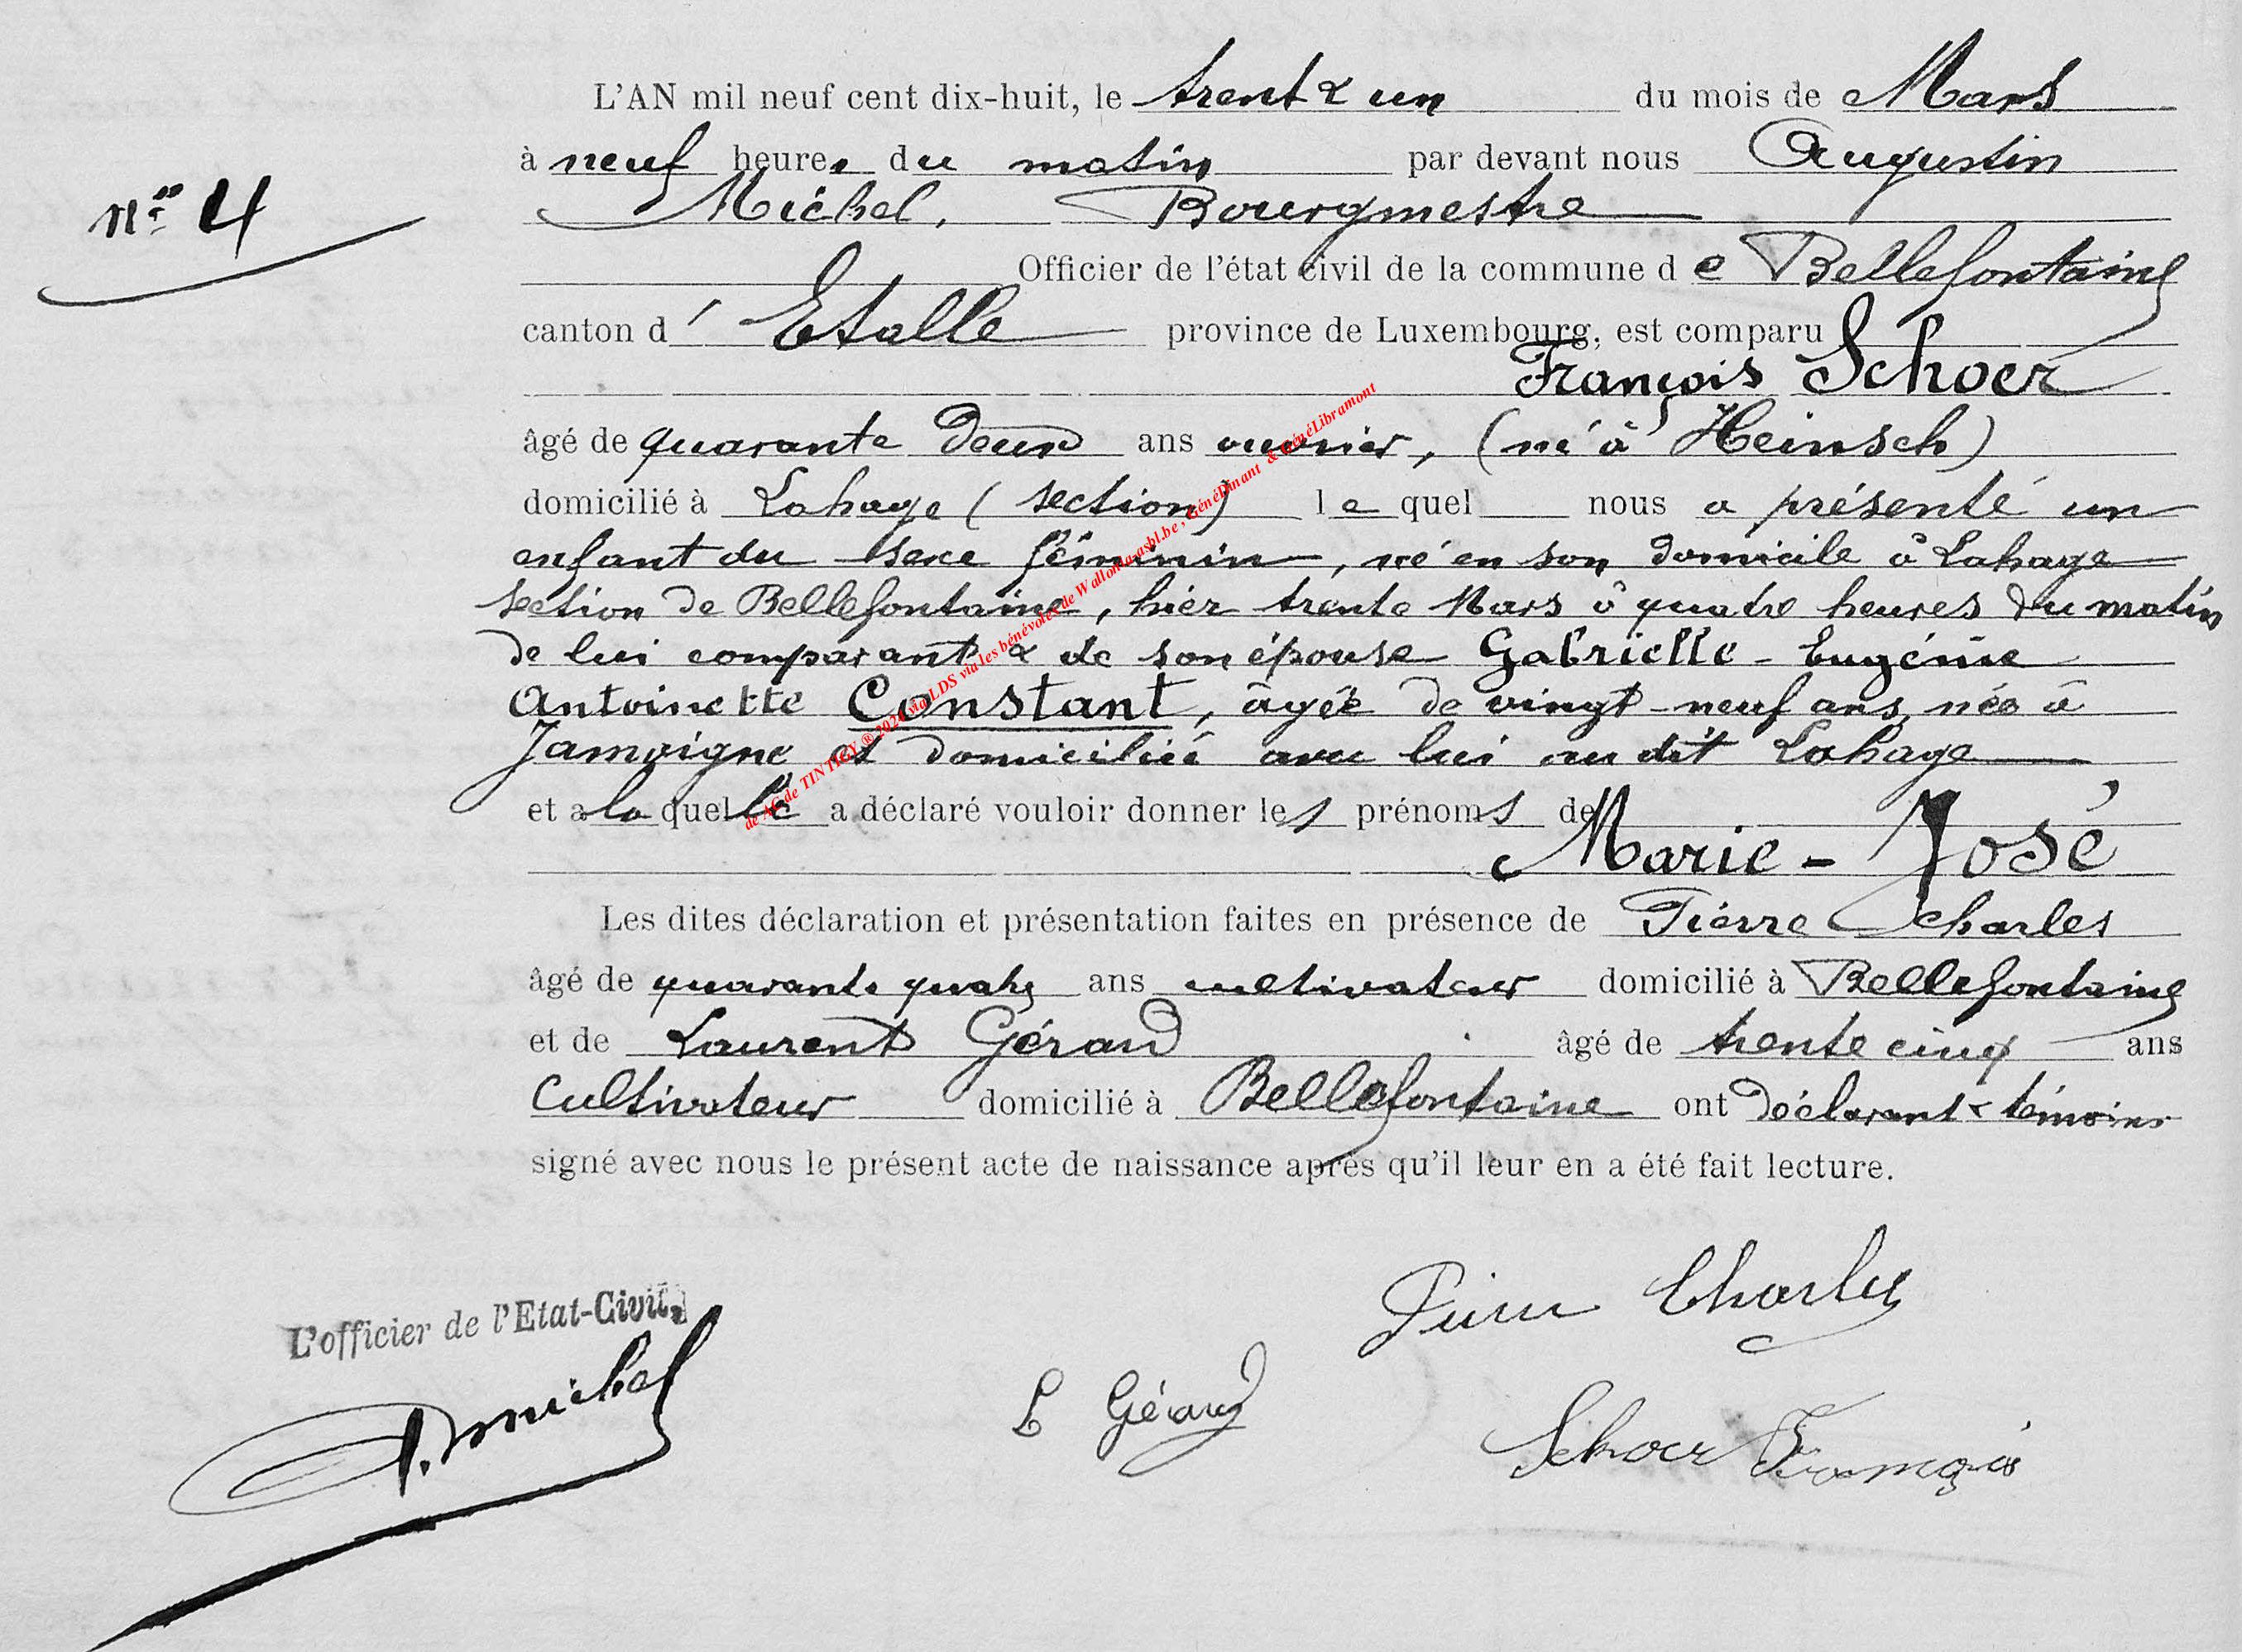 L'AN mil neuf cent dix-huit, le trent & un du mois de Mars
à neuf heures du matin par devant nous Augustin
n° 4
Michel, Bourgmestre
Officier de l'état civil de la commune de Bellefontaine
canton d' Etalle province de Luxembourg, est comparu
François Schoer
âgé de quarante deux ans ouvrier, (né à Heinsch)
domicilié à Lahage (section) le quel nous a présenté un
enfant du sexe féminin, né en son domicile à Lahage
section de Bellefontaine, hier trente Mars à quatre heures du matin
de lui comparant & de son épouse Gabrielle - Eugénie
Antoinette Constant, âgée de vingt-neuf ans, née à
Jamoigne et domiciliée avec lui au dit Lahage
et a la quelle a déclaré vouloir donner les prénoms de
Marie - José
Les dites déclaration et présentation faites en présence de Pierre Charles
âgé de quarante quatre ans cultivateur domicilié à Bellefontaine
et de Laurent Gérard âgé de trente cinq ans
Cultivateur domicilié à Bellefontaine ont déclarant & témoins
signé avec nous le présent acte de naissance après qu'il leur en a été fait lecture.
Pierre Charles
L'officier de l'Etat-Civil,
A. Michel
L Gérard
Schoer François
de AC de TINTIGY ® 2024 via LDS via les bénévoles de Wallonia-asbl.be, GénéDinant & GénéLibramont